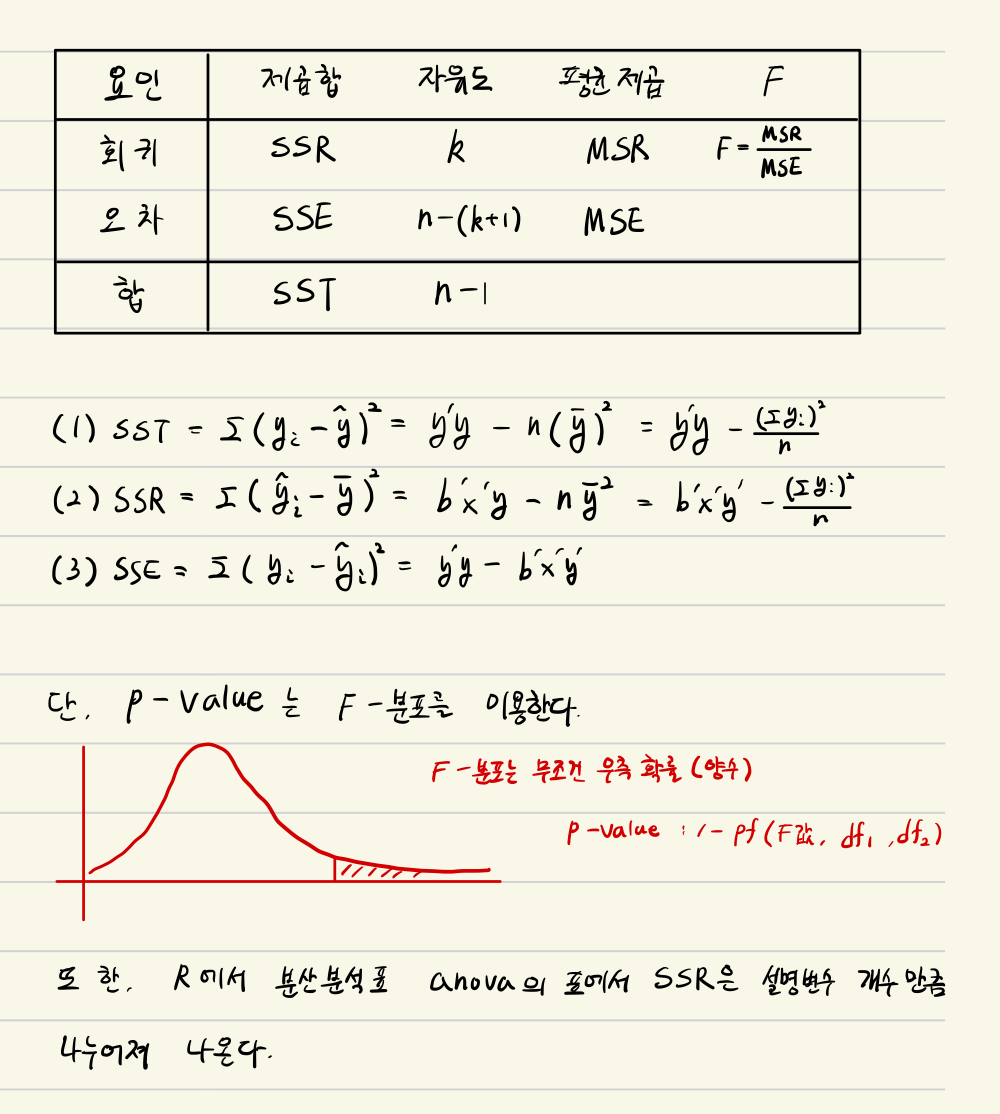 요인 제곱합 자유도 평균제곱 F
회귀 SSR k MSR F = MSR/MSE
오차 SSE n-(k+1) MSE
합 SST n-1
(1) SST = Σ(yᵢ - ŷ)² = y′y - n(ȳ)² = y′y - (Σyᵢ)²/n
(2) SSR = Σ(ŷᵢ - ȳ)² = b′x′y - nȳ² = b′x′y′ - (Σyᵢ)²/n
(3) SSE = Σ(yᵢ - ŷᵢ)² = y′y - b′x′y′
단, p-value는 F-분포를 이용한다.
F-분포는 무조건 우측 확률 (양수)
p-value : 1- pf(F값, df₁, df₂)
또한, R에서 분산분석표 anova의 표에서 SSR은 설명변수 개수만큼
나누어져 나온다.